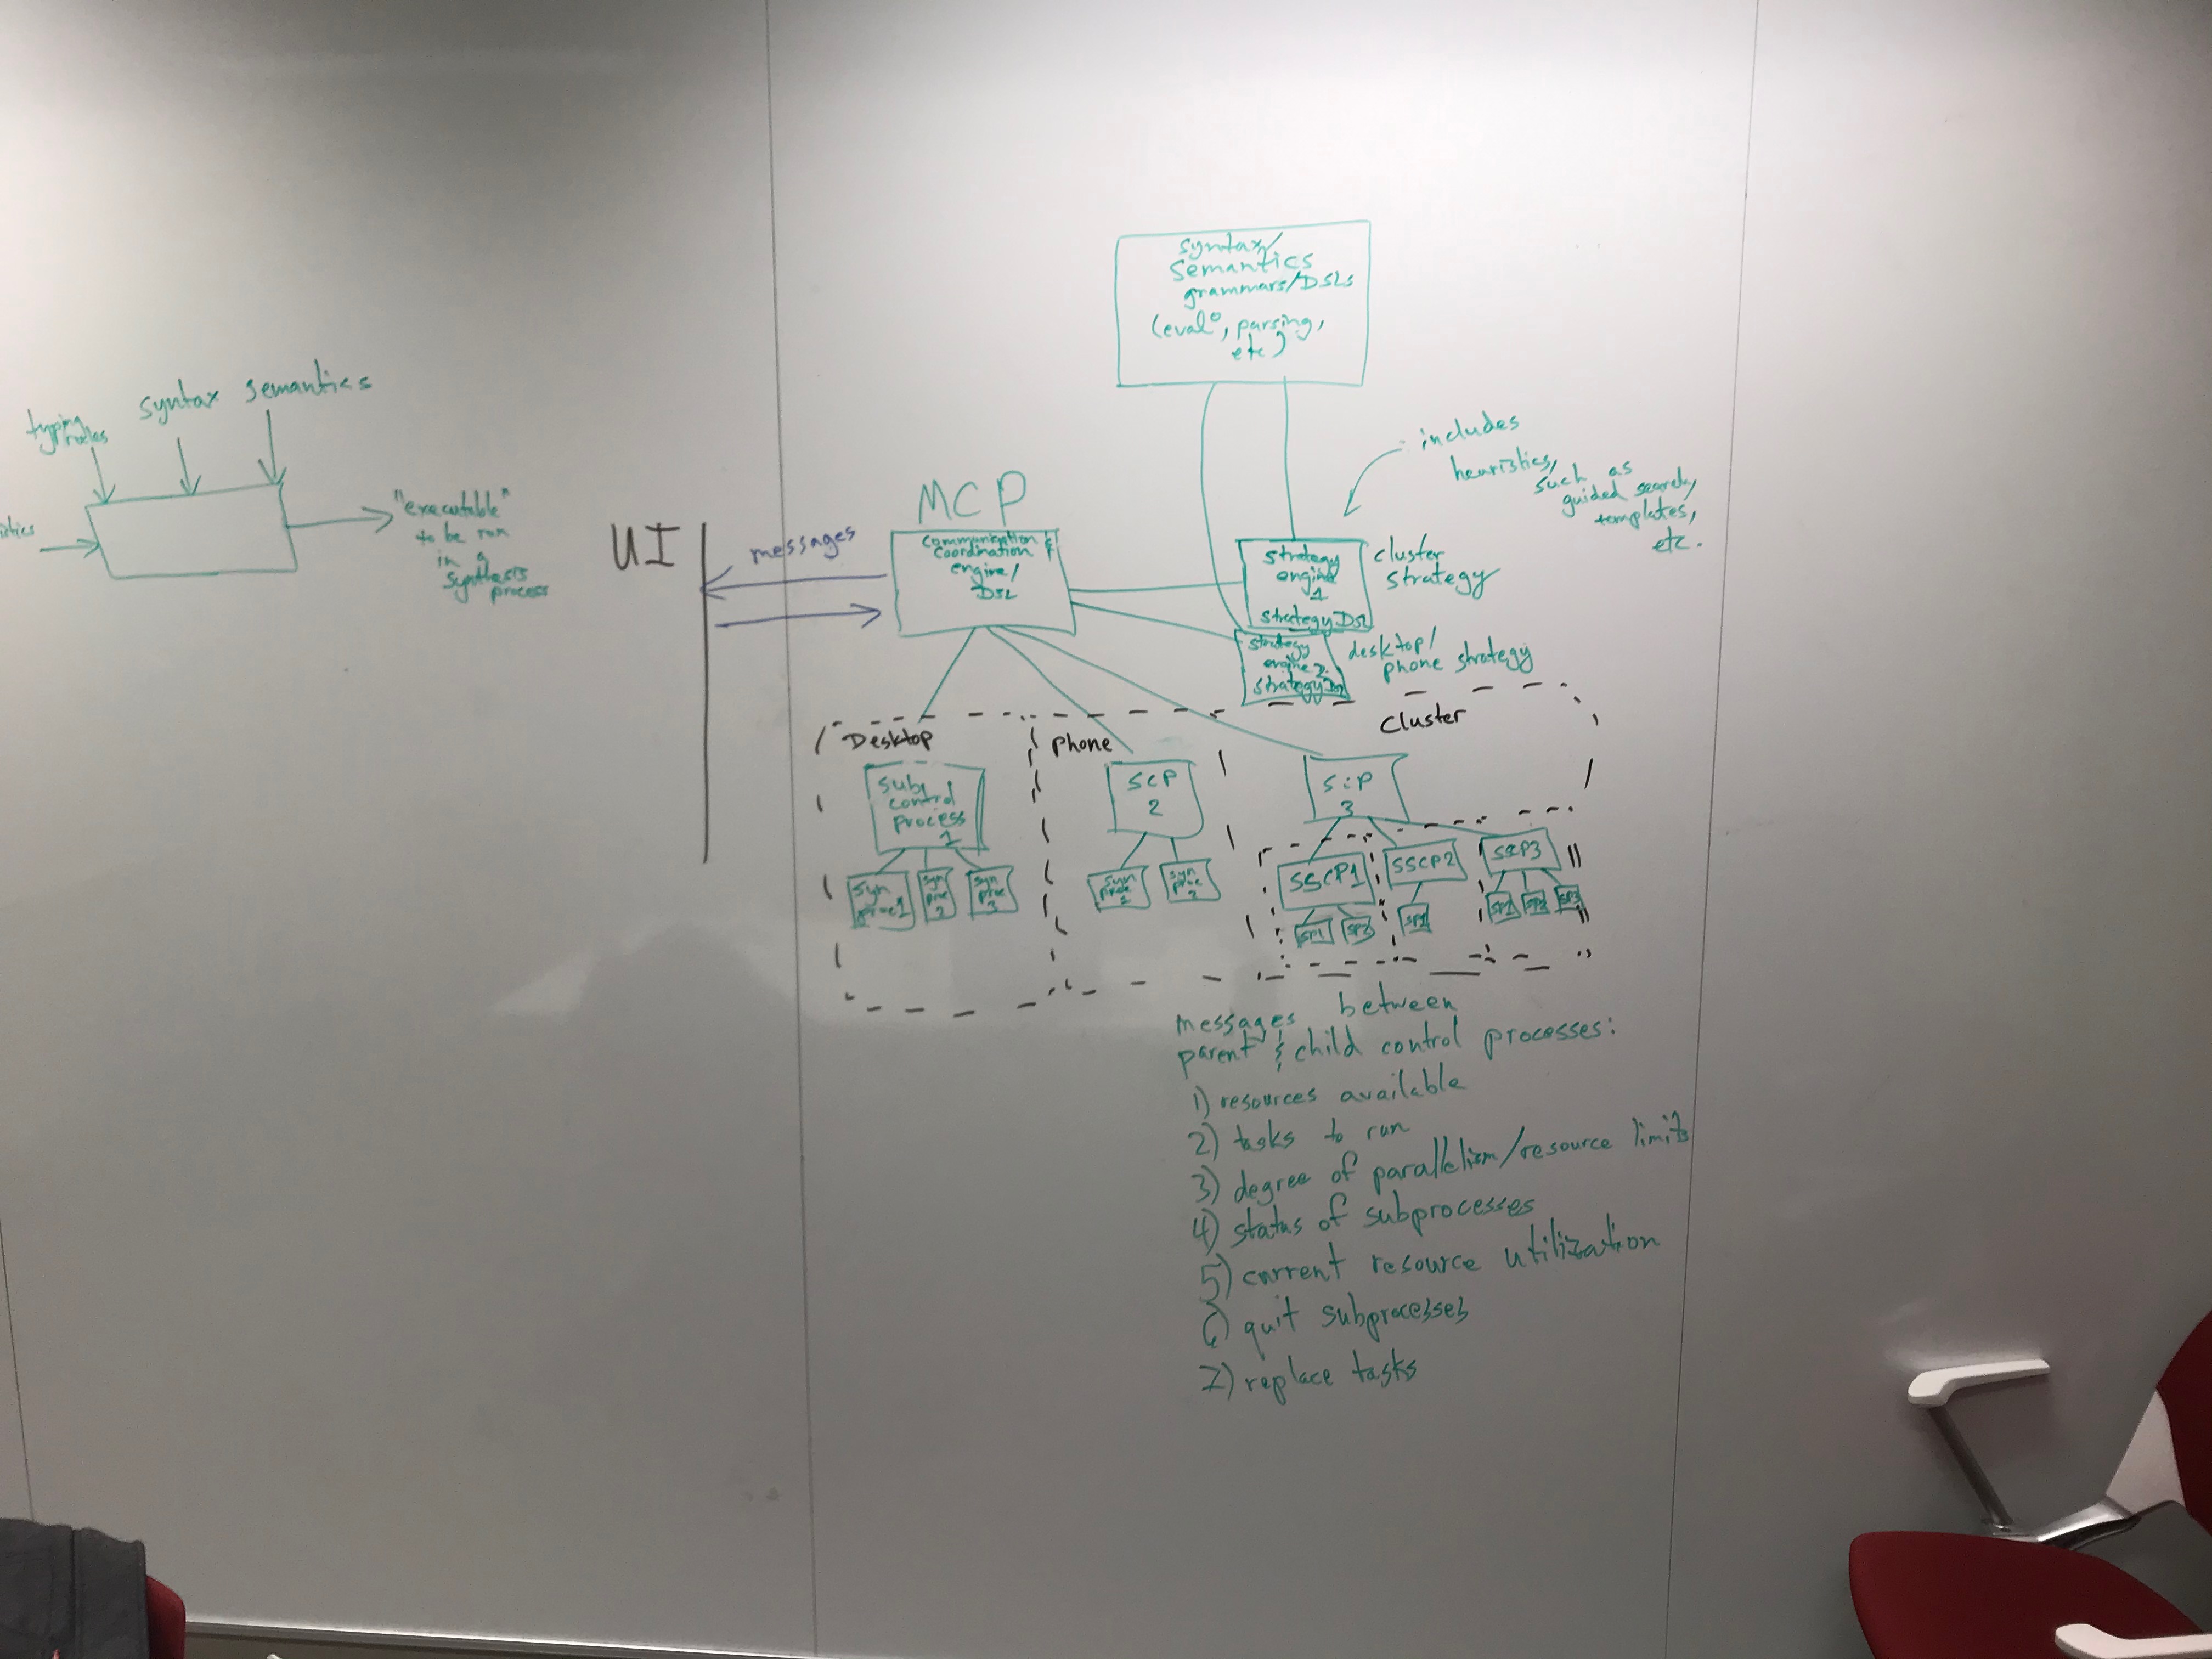 typing
rules
syntax
semantics
"executable"
to be run
in a
synthesis
process
UI
messages
MCP
communication &
coordination
engine/
DSL
syntax/
semantics
grammars/DSLs
(evalo, parsing,
etc)
includes
heuristics,
such as
guided search,
templates,
etc.
strategy
engine
1
strategy DSL
cluster
strategy
strategy
engine 2
strategy DSL
desktop/
phone strategy
Desktop
phone
Cluster
sub
control
process
1
SCP
2
SCP
3
syn
proc 1
syn
proc
2
syn
proc
3
syn
proc
1
syn
proc
2
SSCP1
SSCP2
SSCP3
SP1
SP2
SP1
SP1
SP2
SP3
messages between
parent & child control processes:
1) resources available
2) tasks to run
3) degree of parallelism/resource limits
4) status of subprocesses
5) current resource utilization
6) quit subprocesses
7) replace tasks